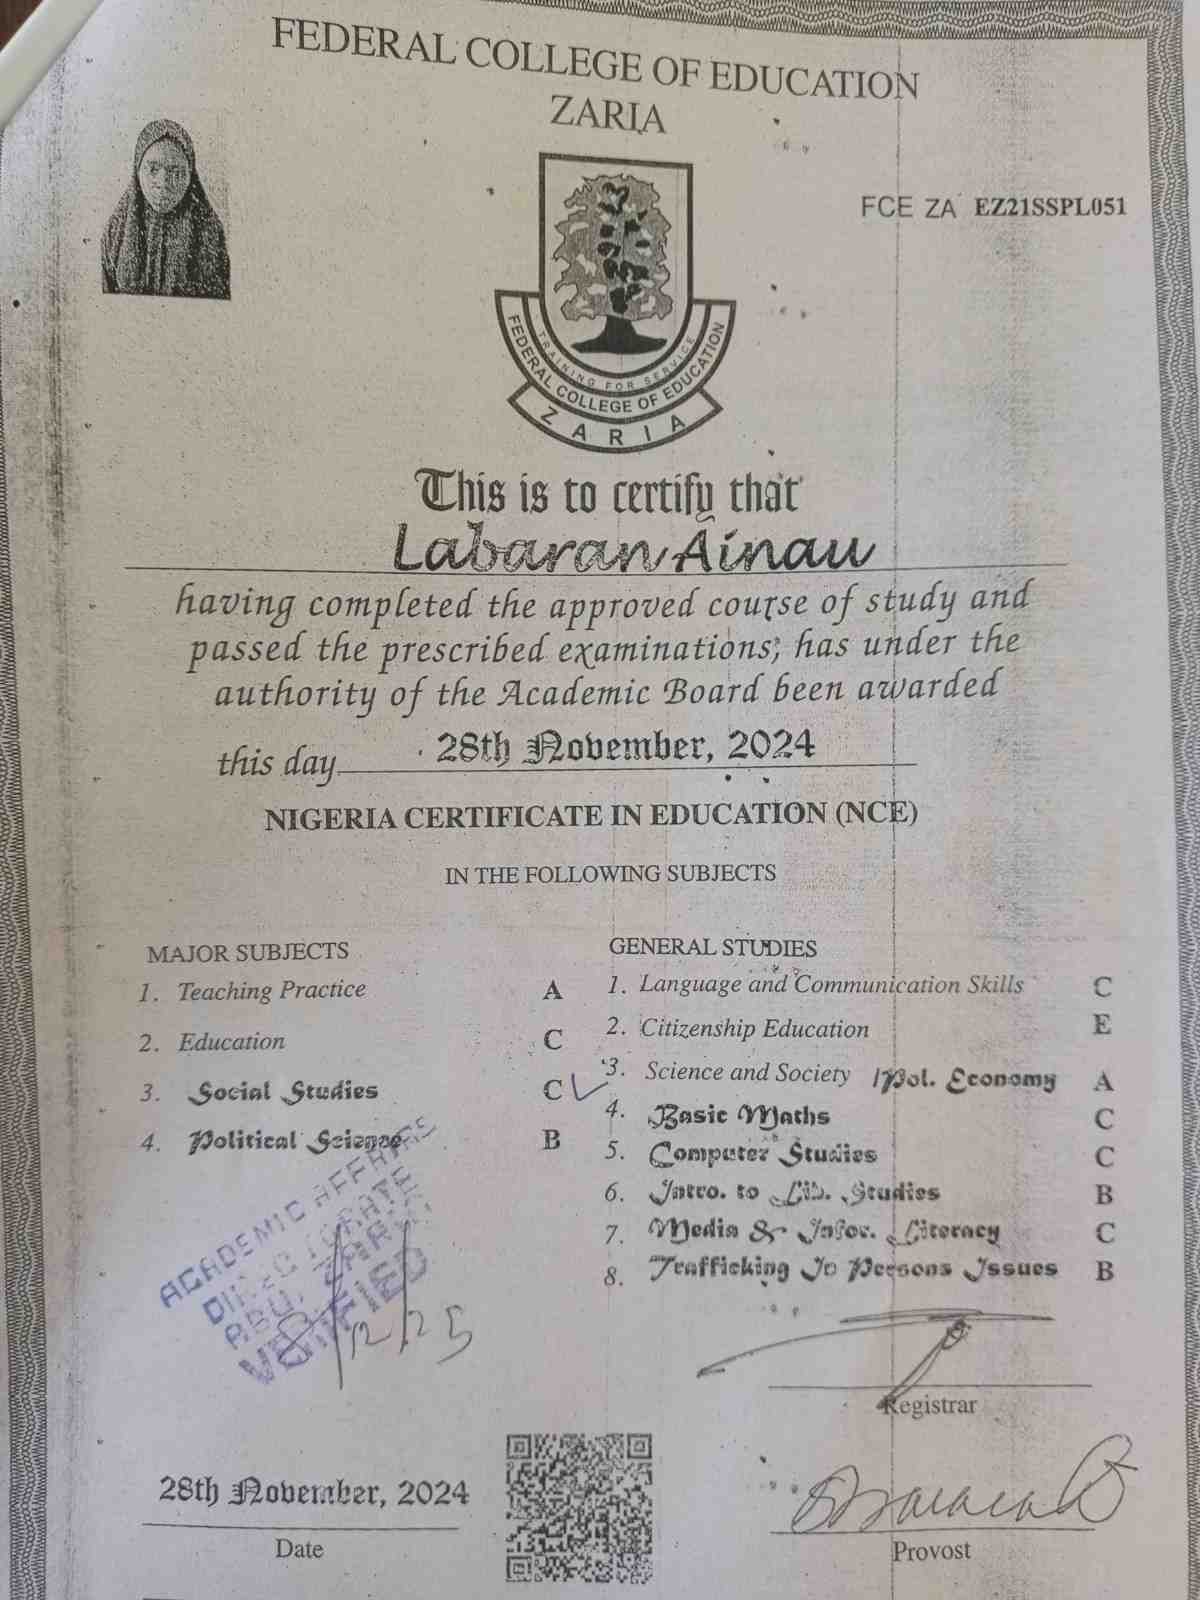 FEDERAL COLLEGE OF EDUCATION
ZARIA
FCE ZA EZ21SSPL051
TRAINING FOR SERVICE
FEDERAL COLLEGE OF EDUCATION
ZARIA
This is to certify that
Labaran Ainau
having completed the approved course of study and
passed the prescribed examinations, has under the
authority of the Academic Board been awarded
this day 28th November, 2024
NIGERIA CERTIFICATE IN EDUCATION (NCE)
IN THE FOLLOWING SUBJECTS
MAJOR SUBJECTS
1. Teaching Practice A
2. Education C
3. Social Studies C
4. Political Science B
GENERAL STUDIES
1. Language and Communication Skills C
2. Citizenship Education E
3. Science and Society /Pol. Economy A
4. Basic Maths C
5. Computer Studies C
6. Intro. to Lib. Studies B
7. Media & Infor. Literacy C
8. Trafficking In Persons Issues B
ACADEMIC AFFAIRS
ABU,
VERIFIED
12/25
Registrar
28th November, 2024
Date
Provost